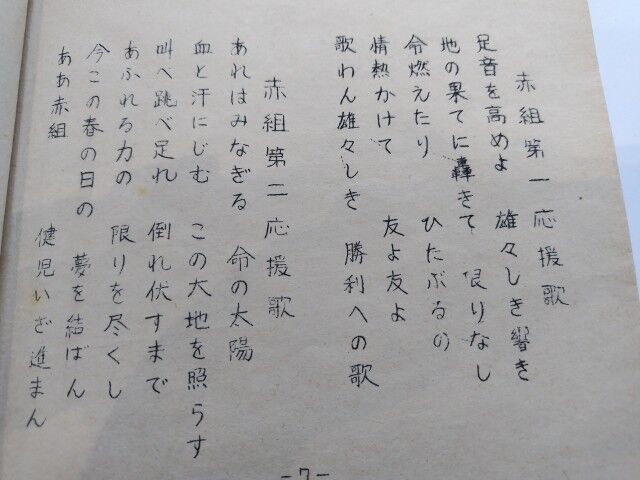 赤組第一応援歌
足音を高めよ 雄々しき響き
地の果てに轟きて 限りなし
命燃えたり ひたぶるの
情熱かけて 友よ友よ
歌わん雄々しき 勝利への歌
赤組第二応援歌
あれはみなぎる 命の太陽
血と汗にじむ この大地を照らす
叫べ跳べ走れ 倒れ伏すまで
あふれる力の 限りを尽くし
今この春の日の 夢を結ばん
ああ赤組 健児いざ進まん
-7-